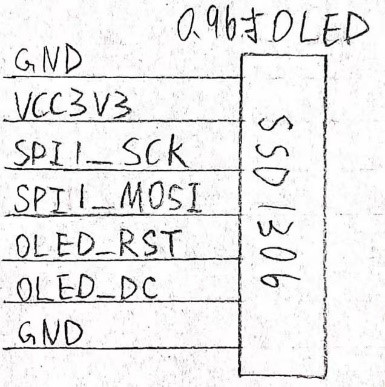 0.96寸OLED
GND
VCC3V3
SPI1_SCK
SPI1_MOSI
OLED_RST
OLED_DC
GND
SSD1306